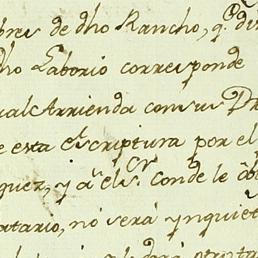 bres de dho Rancho, q.e dis
ho Laborio corresponde
ual Arrienda con sus Pr
e esta Escriptura por el
guez, y a el Sr. Conde le ob
atario, no será ynquiet